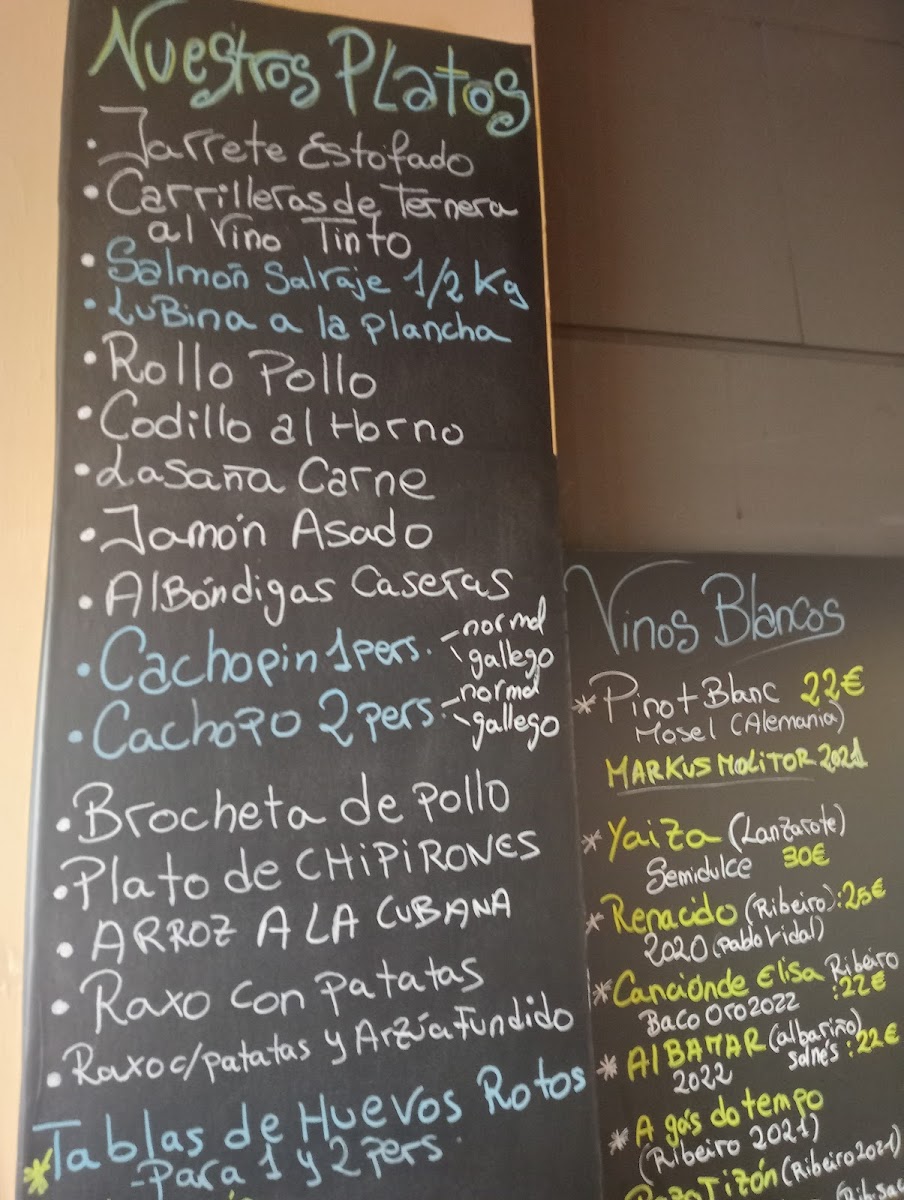 Nuestros Platos
• Jarrete Estofado
• Carrilleras de Ternera
al Vino Tinto
• Salmón Salvaje 1/2 Kg
• Lubina a la plancha
• Rollo Pollo
• Codillo al Horno
• Lasaña Carne
• Jamón Asado
• Albóndigas Caseras
• Cachopin 1 pers. - normal
- gallego
• Cachopo 2 pers. - normal
- gallego
• Brocheta de pollo
• Plato de CHIPIRONES
• ARROZ A LA CUBANA
• Raxo con patatas
• Raxo c/patatas y Arzúa Fundido
* Tablas de Huevos Rotos
- Para 1 y 2 pers.
Vinos Blancos
* Pinot Blanc 22€
Mosel (Alemania)
MARKUS MOLITOR 2021
* Yaiza (Lanzarote)
Semidulce 30€
* Renacido (Ribeiro): 25€
2020 (Pablo Vidal)
* Canción de Elisa Ribeiro
Baco Oro 2022 : 22€
* AlBAMAR (albariño)
2022 salnés : 22€
* A gás do tempo
(Ribeiro 2021)
Tizón (Ribeiro 2021)